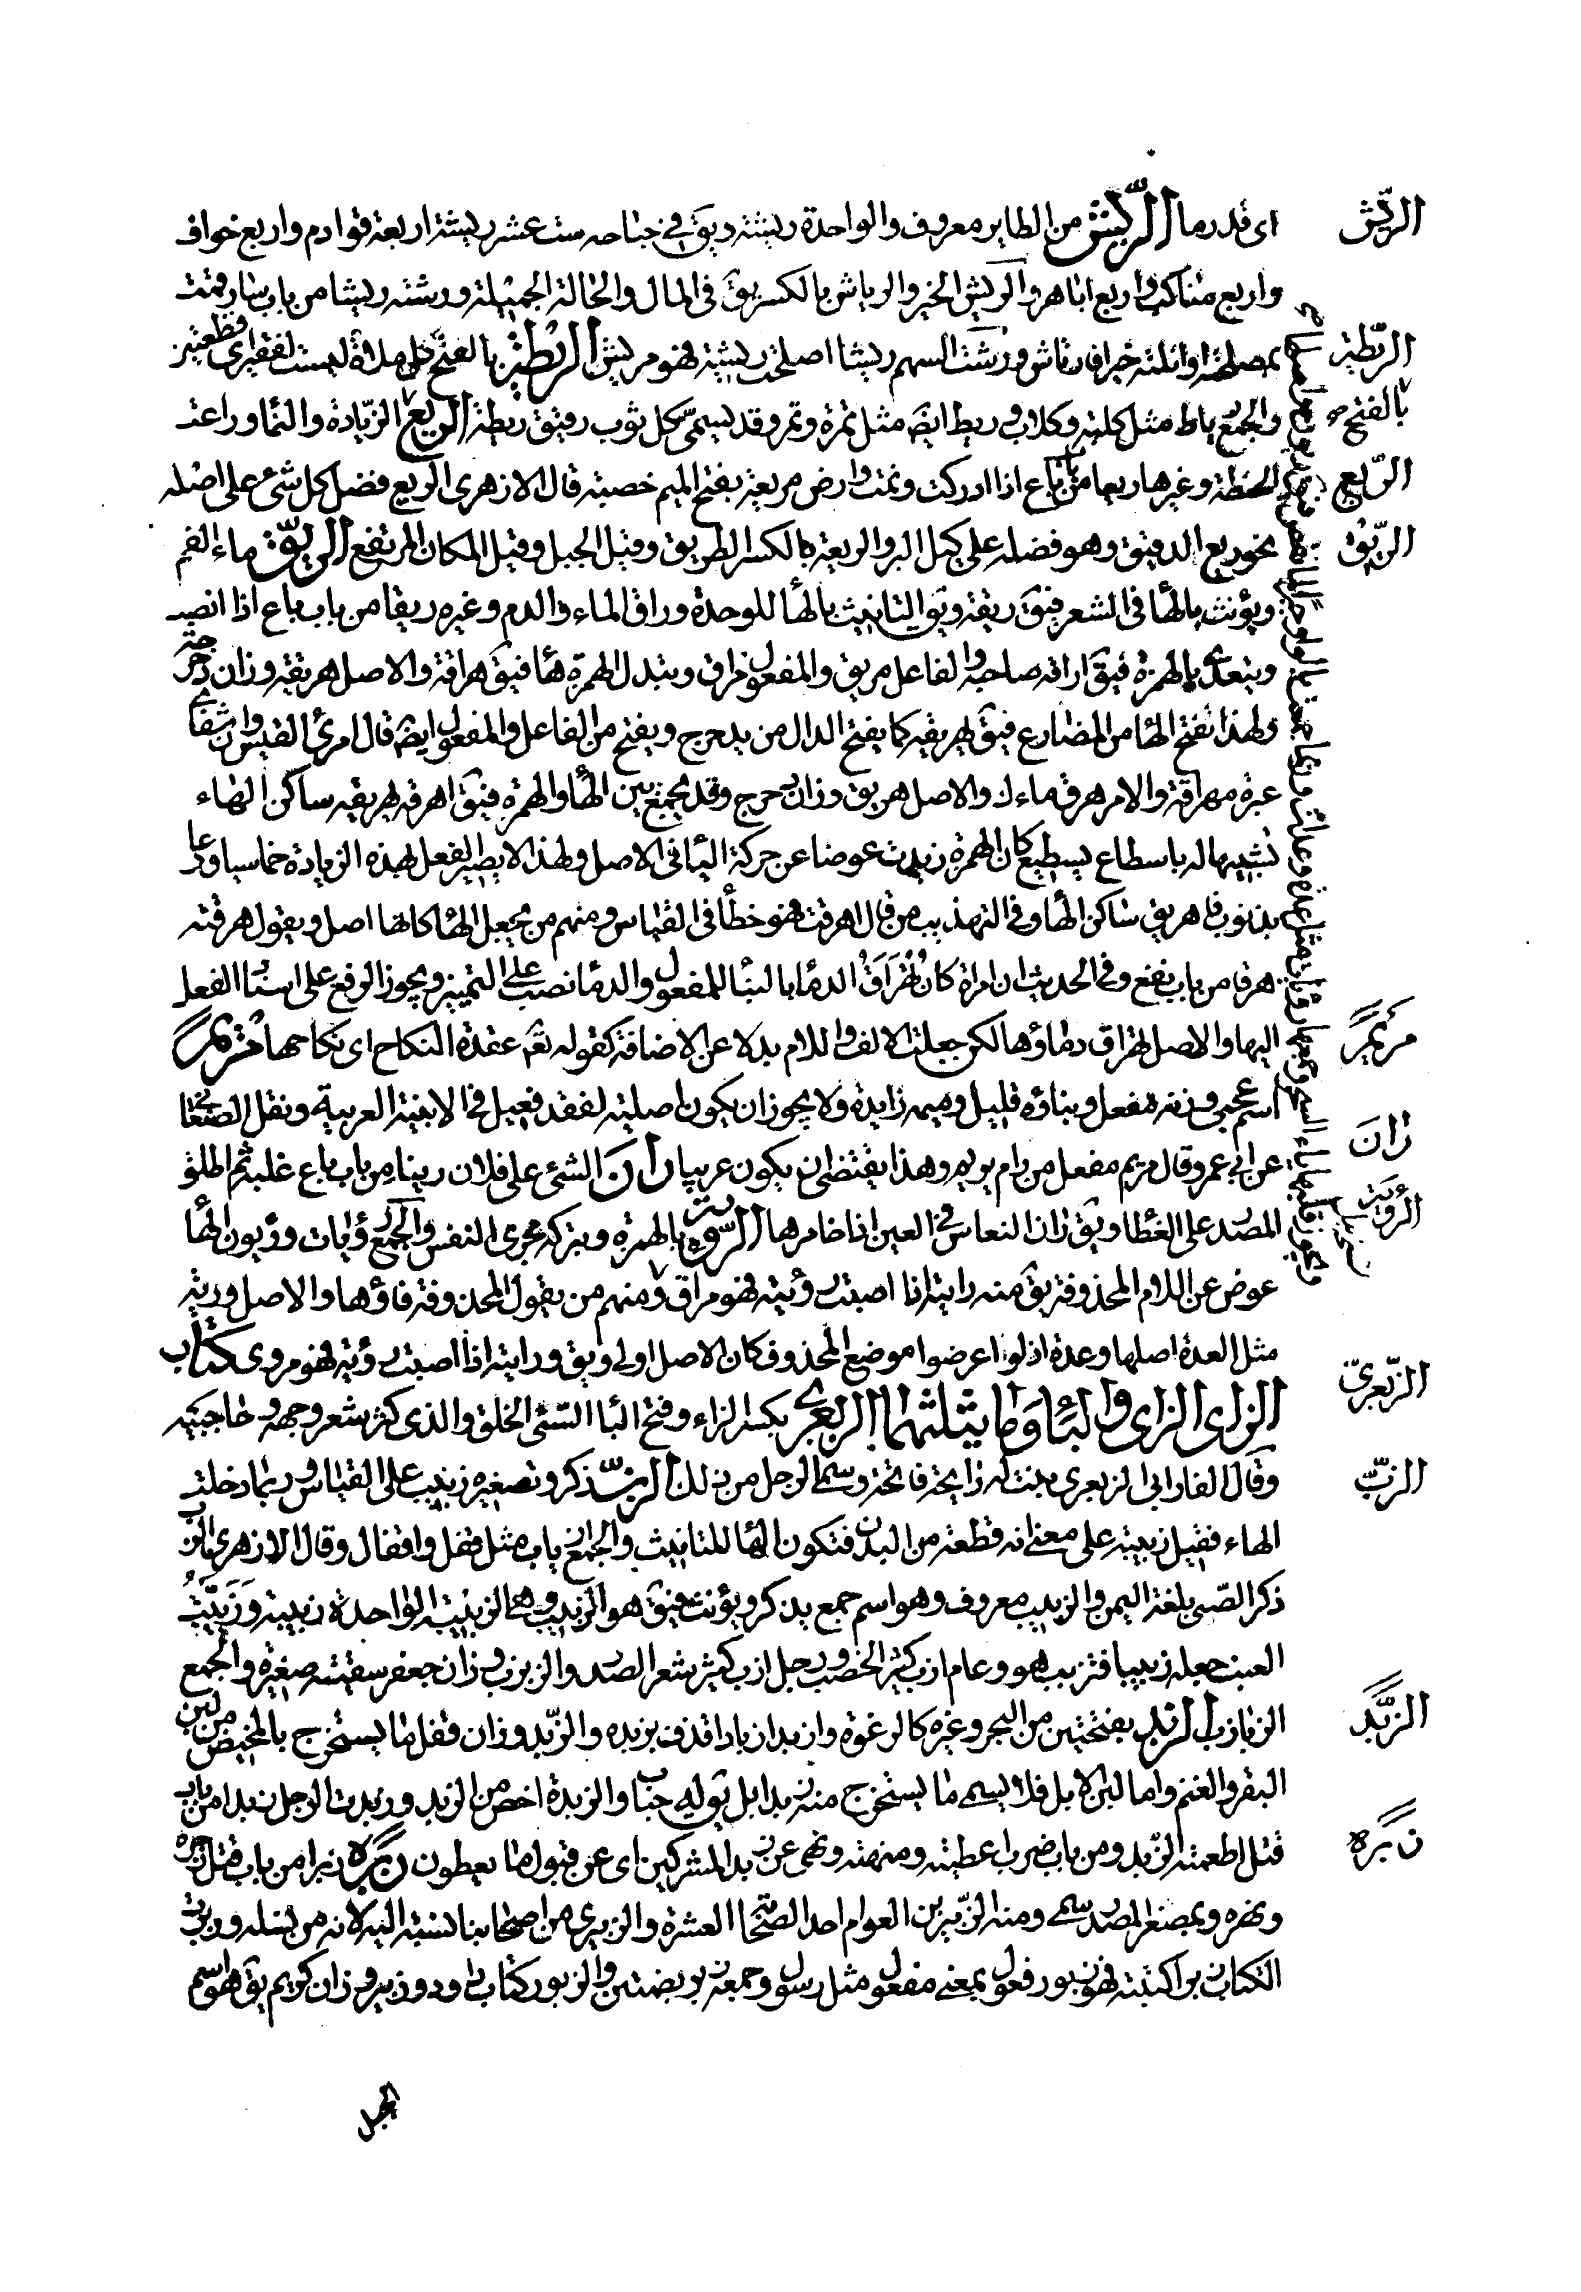 اى قدر ما الريش من الطاير معروف والواحدة ريشة ويق فى جناحه ست عشر ريشة اربعة قوادم واربع خواف
واربع مناكب واربع اباهر والريش الخير والرياش بالكسر يق فى المال والحالة الجميلة ورشته ريشا من باب باع قمت
بمصلحته او انلته خيرا فارتاش ورشت السهم ريشا اصلحت ريشه فهو مريش الريطة بالفتح كل ملاءة ليست لفقين اى قطعتين
والجمع رياط مثل كلبة وكلاب وريط ايضا مثل تمرة وتمر وقد يسمى كل ثوب رقيق ريطة الريع الزيادة والنما وراعت
الحنطة وغيرها ريعا من باب باع اذا ادركت ونمت وارض مريعة بفتح الميم خصبة قال الازهرى الريع فضل كل شئ على اصله
نحو ريع الدقيق وهو فضله على كيل البر والريعة بالكسر الطريق وقيل الجبل وقيل المكان المرتفع الريق ماء الفم
ويؤنث بالها فى الشعر فيق ريقة ويق التانيث بالها للوحدة وراق الماء والدم وغيره ريقا من باب باع اذا انصب
ويتعدى بالهمزة فيق اراقه صاحبه والفاعل مريق والمفعول مراق وتبدل الهمزة ها فيق هراقه والاصل هريقه وزان دحرجه
ولهذا تفتح الها من المضارع فيق يهريقه كما يفتح الدال من يدحرج ويفتح من الفاعل والمفعول ايضا قال امرئ القيس وان شفائى
عبرة مهراقة والامر هرق ماءك والاصل هريق وزان دحرج وقد يجمع بين الها والهمزة فيق اهرقه يهريقه ساكن الهاء
تشبيها له باسطاع يسطيع كان الهمزة زيدت عوضا عن حركة اليا فى الاصل ولهذا لا يصير الفعل بهذه الزيادة خماسيا ودعا
بذنوب فاهريق ساكن الها وفى التهذيب من قال اهرقت فهو خطأ فى القياس ومنهم من يجعل الها كانها اصل ويقول هرقته
هرقا من باب نفع وفى الحديث ان امراة كان تُهْرَاقُ الدما بالبنا للمفعول والدما نصب على التمييز ويجوز الرفع على اسنا الفعل
اليها والاصل تهراق دماؤها لكن جعلت الالف واللام بدلا عن الاضافة كقوله تع عقدة النكاح اى نكاحها مريم
اسم عجمى وزنه مفعل وبناؤه قليل وميمه زايدة ولا يجوز ان يكون اصلية لفقد فعيل فى الابنية العربية ونقل الصغانى
عن ابى عمرو قال مريم مفعل من رام يريم وهذا يقتضى ان يكون عربيا ران الشئ على فلان رينا من باب باع غلبه ثم اطلق
المصدر على الغطا ويق ران النعاس فى العين اذا خامرها الروية بالهمزة وتركه مجرى النفس والجمع رؤيات ورؤيون الها
عوض عن اللام المحذوفة يق منه رايته اذا اصبت رؤيته فهو مراى ومنهم من يقول المحذوفة فاؤها والاصل ورية
مثل العدة اصلها وعدة اذ لو اعرضوا موضع المحذوف كان الاصل اولى ويق ورايته اذا اصبت رؤيته فهو مروى كتاب
الزاى الزاى والبا وما يثلثهما الزبعرى بكسر الزاء وفتح البا السّئ الخلق والذى كثر شعر وجهه وحاجبيه
وقال الفارابى الزبعرى نبت له رايحة فايحة وسمى الرجل من ذلك الزب ذكر وتصغيره زبيب على القياس وربما دخلت
الهاء فقيل زبيبة على معنى انه قطعة من البدن فتكون الها للتانيث والجمع ازباب مثل قفل واقفال وقال الازهرى الزب
ذكر الصبى بلغة اليمن والزبيب معروف وهو اسم جمع يذكر ويؤنث فيق هو الزبيب وهى الزبيب الواحدة زبيبة وزببت
العنب جعله زبيبا فتزبب هو وعام ازب كثير الخصب ورجل ازب كثير شعر الصدر والزبزب وزان جعفر سفينة صغيرة والجمع
الزبازب الزبد بفتحتين من البحر وغيره كالرغوة وازبد ازبادا قذف بزبده والزبد وزان قفل ما يستخرج بالمخض من لبن
البقر والغنم واما لبن الابل فلا يسمى ما يستخرج منه زبدا بل يق له جباب والزبدة اخص من الزبد وزبدت الرجل زبدا من باب
قتل اطعمته الزبد ومن باب ضرب اعطيته ومنحته ونهى عن زبد المشركين اى عن قبول ما يعطون زبره زبرا من باب قتل زجره
ونهره وبمصغر المصدر سمى ومنه الزبير بن العوام احد الصحا العشرة والزبيرى من اصحابنا نسبة اليه لانه من نسله وزبرت
الكتاب زبرا كتبته فهو زبور فعول بمعنى مفعول مثل رسول وجمعه زبر بضمتين والزبور كتاب داود وزبير وزان كريم يق هو اسم
الجبل
الريش
الريطة
بالفتح
الريع
الريق
مريم
ران
الروية
الزبعرى
الزب
الزبد
زبره